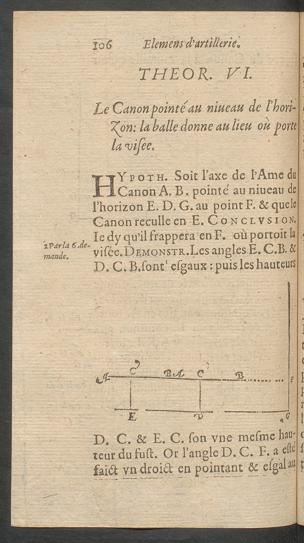 106 Elemens d'artillerie.
THEOR. VI.
Le Canon pointé au niueau de l'hori-
Zon: la balle donne au lieu où porte
la visee.
HYPOTH. Soit l'axe de l'Ame du
Canon A. B. pointé au niueau de
l'horizon E. D. G. au point F. & que le
Canon reculle en E. CONCLVSION.
Ie dy qu'il frappera en F. où portoit la
visée. DEMONSTR. Les angles E. C. B. &
D. C. B. sont esgaux: puis les hauteurs
2 Par la 6. de-
mande.
A C BA C B
E D G
D. C. & E. C. son vne mesme hau-
teur du fust. Or l'angle D. C. F. a esté
faict vn droict en pointant & esgal au